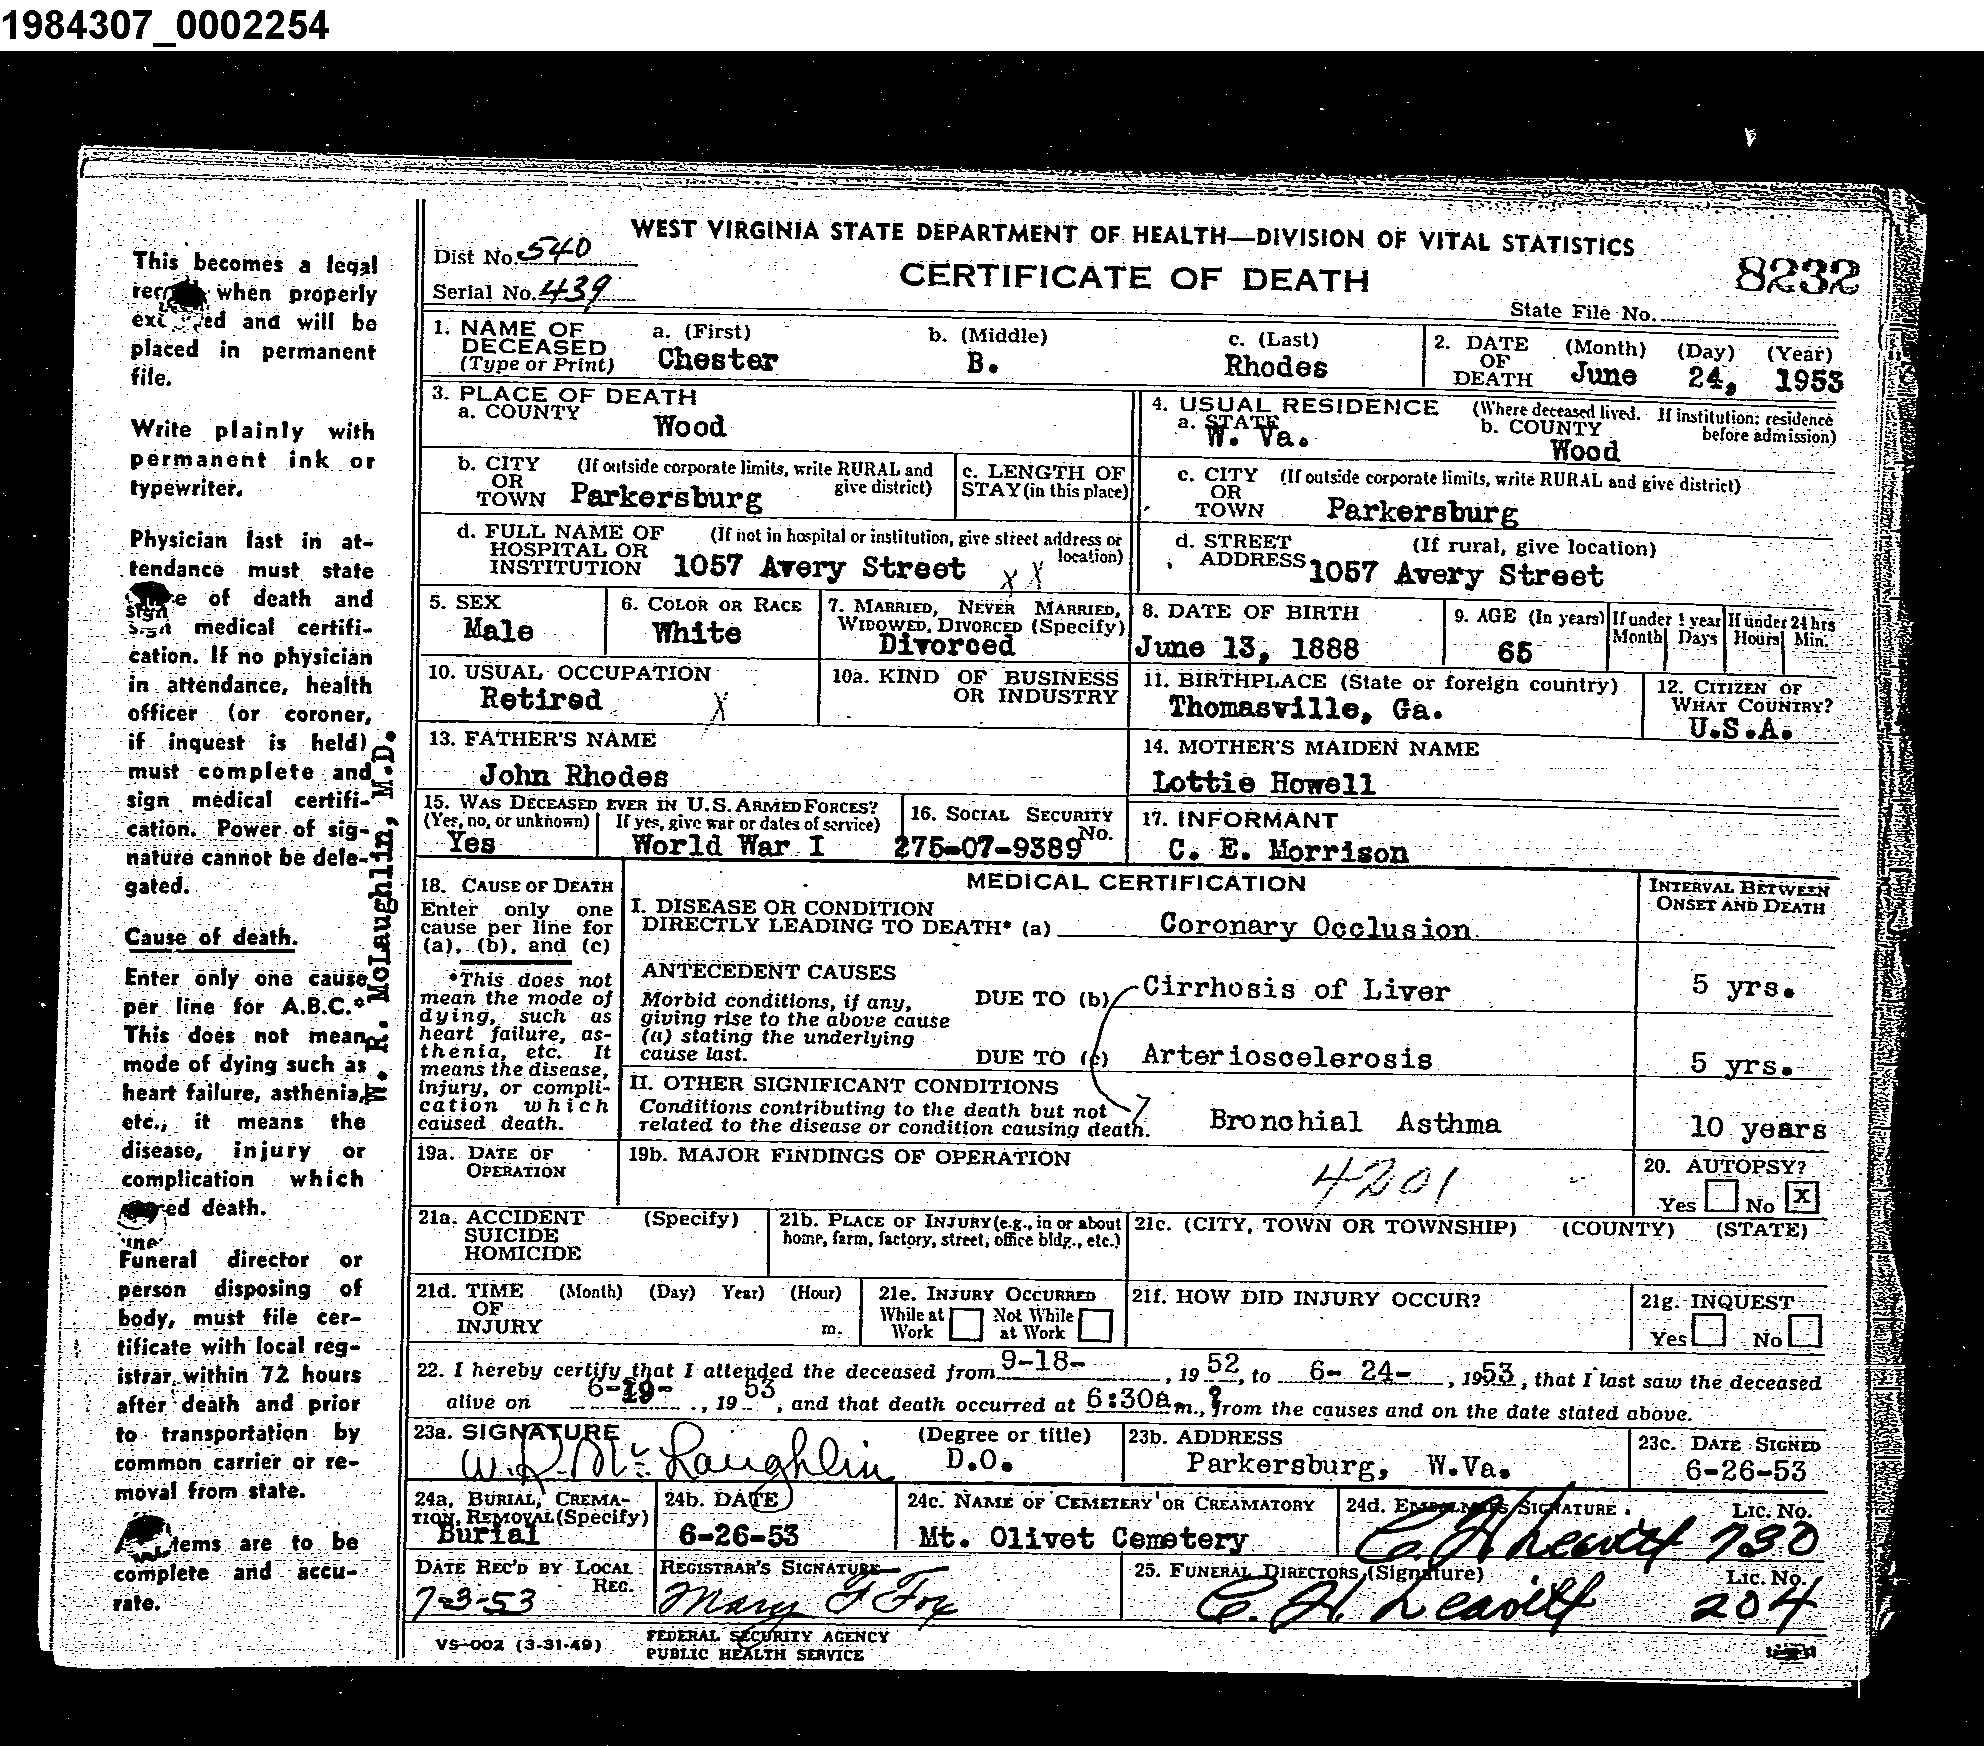 1984307_0002254
This becomes a legal
when properly
and will be
placed in permanent
file.
Write plainly with
permanent ink or
typewriter.
Physician last in at-
tendance must state
of death and
sign medical certifi-
cation. If no physician
in attendance, health
officer (or coroner,
if inquest is held)
must complete and
sign medical certifi-
cation. Power of sig-
nature cannot be dele-
gated.
Cause of death.
Enter only one cause
per line for A.B.C.*
This does not mean
mode of dying such as
heart failure, asthenia,
etc., it means the
disease, injury or
complication which
death.
Funeral director or
person disposing of
body, must file cer-
tificate with local reg-
istrar within 72 hours
after death and prior
to transportation by
common carrier or re-
moval from state.
items are to be
complete and accu-
rate.
W. R. McLaughlin, M.D.
WEST VIRGINIA STATE DEPARTMENT OF HEALTH—DIVISION OF VITAL STATISTICS
Dist No. 540
CERTIFICATE OF DEATH
8232
Serial No. 439
State File No.
1. NAME OF DECEASED (Type or Print) a. (First) Chester b. (Middle) B. c. (Last) Rhodes
2. DATE OF DEATH (Month) (Day) (Year) June 24, 1953
3. PLACE OF DEATH
a. COUNTY Wood
4. USUAL RESIDENCE (Where deceased lived. If institution: residence before admission)
a. STATE W. Va. b. COUNTY Wood
b. CITY OR TOWN (If outside corporate limits, write RURAL and give district) Parkersburg
c. LENGTH OF STAY (in this place)
c. CITY OR TOWN (If outside corporate limits, write RURAL and give district) Parkersburg
d. FULL NAME OF HOSPITAL OR INSTITUTION (If not in hospital or institution, give street address or location) 1057 Avery Street XX
d. STREET ADDRESS (If rural, give location) 1057 Avery Street
5. SEX Male
6. COLOR OR RACE White
7. MARRIED, NEVER MARRIED, WIDOWED, DIVORCED (Specify) Divorced
8. DATE OF BIRTH June 13, 1888
9. AGE (In years) 65 If under 1 year Month Days If under 24 hrs Hours Min.
10. USUAL OCCUPATION Retired X
10a. KIND OF BUSINESS OR INDUSTRY
11. BIRTHPLACE (State or foreign country) Thomasville, Ga.
12. CITIZEN OF WHAT COUNTRY? U.S.A.
13. FATHER'S NAME John Rhodes
14. MOTHER'S MAIDEN NAME Lottie Howell
15. WAS DECEASED EVER IN U.S. ARMED FORCES? (Yes, no, or unknown) Yes If yes, give war or dates of service) World War I
16. SOCIAL SECURITY No. 275-07-9389
17. INFORMANT C. E. Morrison
18. CAUSE OF DEATH
Enter only one cause per line for (a), (b), and (c)
*This does not mean the mode of dying, such as heart failure, asthenia, etc. It means the disease, injury, or complication which caused death.
MEDICAL CERTIFICATION
INTERVAL BETWEEN ONSET AND DEATH
I. DISEASE OR CONDITION DIRECTLY LEADING TO DEATH* (a) Coronary Occlusion
ANTECEDENT CAUSES
Morbid conditions, if any, giving rise to the above cause (a) stating the underlying cause last.
DUE TO (b) Cirrhosis of Liver 5 yrs.
DUE TO (c) Arterioscelerosis 5 yrs.
II. OTHER SIGNIFICANT CONDITIONS
Conditions contributing to the death but not related to the disease or condition causing death. Bronchial Asthma 10 years
19a. DATE OF OPERATION
19b. MAJOR FINDINGS OF OPERATION 4201
20. AUTOPSY? Yes No X
21a. ACCIDENT SUICIDE HOMICIDE (Specify)
21b. PLACE OF INJURY (e.g., in or about home, farm, factory, street, office bldg., etc.)
21c. (CITY, TOWN OR TOWNSHIP) (COUNTY) (STATE)
21d. TIME OF INJURY (Month) (Day) Year) (Hour) m.
21e. INJURY OCCURRED While at Work Not While at Work
21f. HOW DID INJURY OCCUR?
21g. INQUEST Yes No
22. I hereby certify that I attended the deceased from 9-18-, 1952, to 6-24-, 1953, that I last saw the deceased
alive on 6-19-, 1953, and that death occurred at 6:30a m., from the causes and on the date stated above.
23a. SIGNATURE W. R. McLaughlin (Degree or title) D.O.
23b. ADDRESS Parkersburg, W.Va.
23c. DATE SIGNED 6-26-53
24a. BURIAL, CREMATION, REMOVAL (Specify) Burial
24b. DATE 6-26-53
24c. NAME OF CEMETERY OR CREAMATORY Mt. Olivet Cemetery
24d. EMBALMERS SIGNATURE. C. H. Leavitt Lic. No. 730
DATE REC'D BY LOCAL REG. 7-3-53
REGISTRAR'S SIGNATURE Mary F Fox
25. FUNERAL DIRECTORS (Signature) C. H. Leavitt Lic. No. 204
VS-002 (3-31-49)
FEDERAL SECURITY AGENCY
PUBLIC HEALTH SERVICE